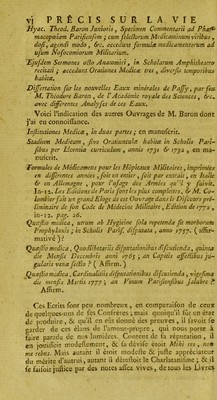 vj PRÉCIS SUR LA VIE
Hyac. Theod. Baron Junioris, Specimen Commentarii ad Phar-
macopœam Parisiensem ; cum selectorum Medicaminum viribus,
dosi, agendi modo, &c. accedunt formulæ medicamentorum ad
usum Nosocomiorum Militarium.
Ejusdem Sermones octo Anatomici, in Scholarum Amphitheatro
recitati ; accedunt Orationes Medicæ tres, diversis temporibus
habitæ.
Dissertation sur les nouvelles Eaux minérales de Passy, par feu
M. Théodore Baron, de l'Académie royale des Sciences, &c.
avec différentes Analyses de ces Eaux.
Voici l'indication des autres Ouvrages de M. Baron dont
j'ai eu connoissance.
Institutiones Medicæ, in duas partes ; en manuscrit.
Studium Medicum, sive Orationulæ habitæ in Scholis Pari-
siensibus per Licentiæ curriculum, annis 1731 & 1732, en ma-
nuscrit.
Formules de Médicamens pour les Hôpitaux Militaires, imprimées
en différentes années, soit en entier, soit par extrait, en Italie
& en Allemagne, pour l'usage des Armées qu'il y suivit.
In-12. Les Editions de Paris sont les plus complètes, & M. Co-
lombier fait un grand Eloge de cet Ouvrage dans le Discours pré-
liminaire de son Code de Médecine Militaire, Edition de 1772,
in-12. pag. 26.
Quæstio medica, utrum ab Hygieine sola repetenda sit morborum
Prophylaxis ; in Scholis Paris. disputata, anno 1757. ( affir-
mative )?
Quæstio medica, Quodlibetariis disputationibus discutienda, quinta
die Mensis Decembris anni 1765 ; an Capitis affectibus ju-
gularis vena sectio ? ( Affirm. )
Quæstio medica, Cardinalitiis disputationibus discutienda, vigesima
die mensis Martii 1777 ; an Vinum Parisiensibus salubre ?
Affirm.
Ces Ecrits sont peu nombreux, en comparaison de ceux
de quelques-uns de ses Confrères ; mais quoiqu'il fût en état
de produire, & qu'il en eût donné des preuves, il savoit se
garder de ces élans de l'amour-propre, qui nous porte à
faire parade de nos lumières. Content de sa réputation, il
en jouissoit modestement, & sa devise étoit Mihi res, non
me rebus. Mais autant il étoit modeste & juste appréciateur
du mérite d'autrui, autant il détestoit le Charlatanisme ; & il
se faisoit justice par des notes assez vives, de tous les Livres